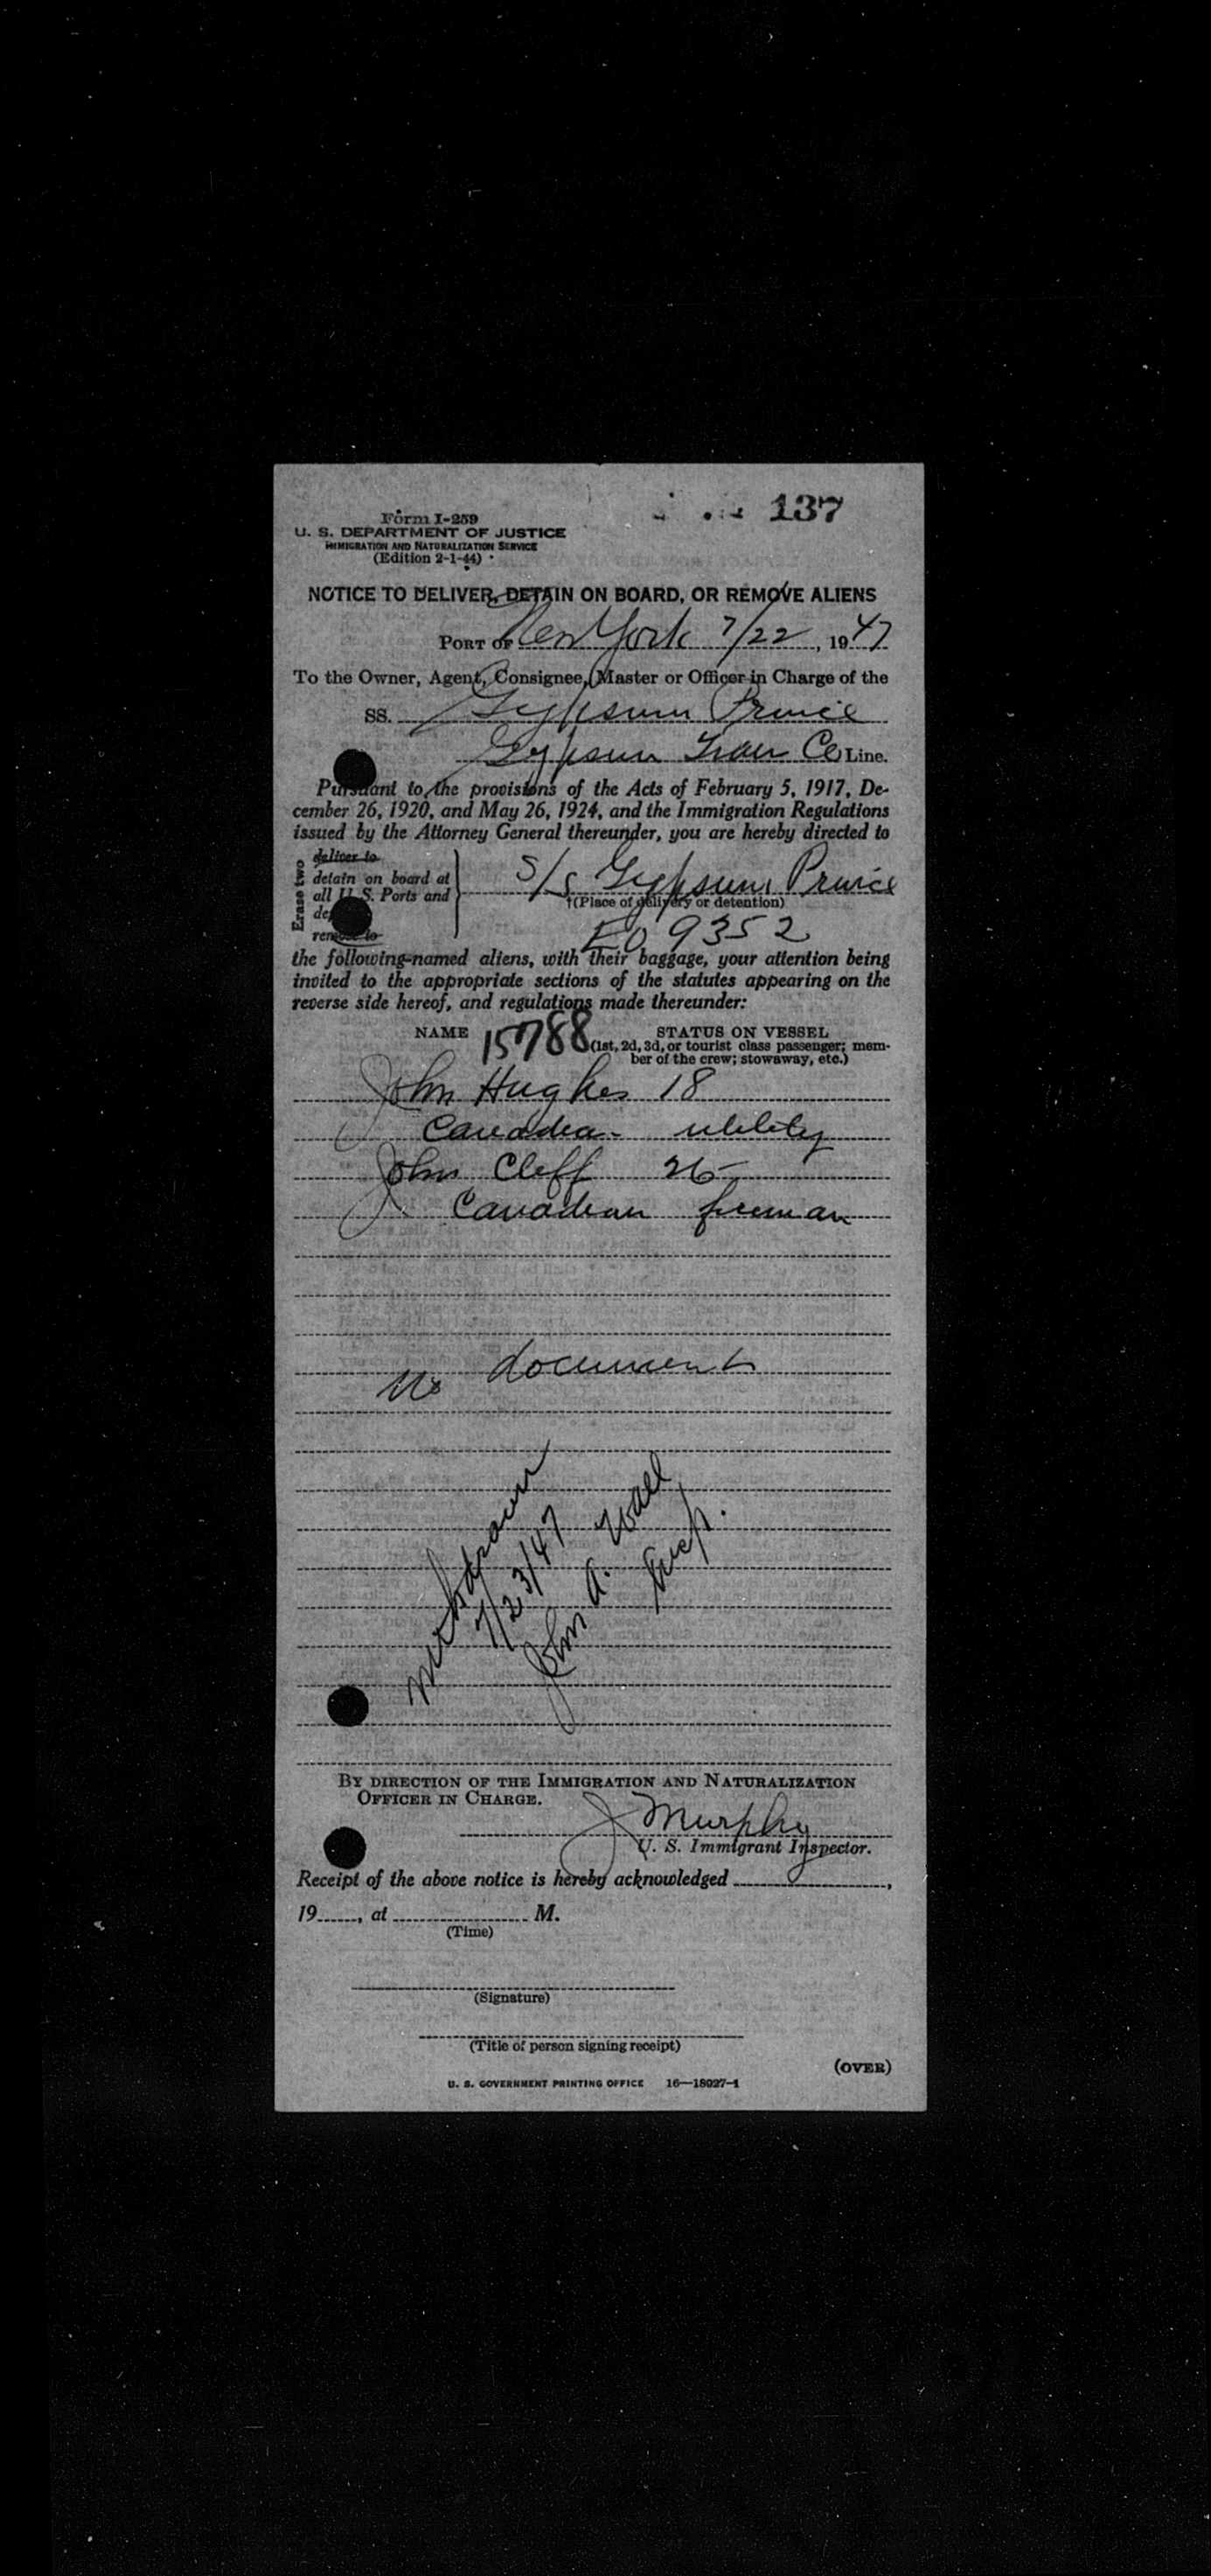 137
Form I-259
U. S. DEPARTMENT OF JUSTICE
IMMIGRATION AND NATURALIZATION SERVICE
(Edition 2-1-44)
NOTICE TO DELIVER, DETAIN ON BOARD, OR REMOVE ALIENS
PORT OF New York 7/22, 1947
To the Owner, Agent, Consignee, Master or Officer in Charge of the
SS. Gypsum Prince
Gypsum Tran Co Line.
Pursuant to the provisions of the Acts of February 5, 1917, De-
cember 26, 1920, and May 26, 1924, and the Immigration Regulations
issued by the Attorney General thereunder, you are hereby directed to
Erase two
deliver to
detain on board at
all U. S. Ports and
remove to
S/S Gypsum Prince
†(Place of delivery or detention)
EO 9352
the following-named aliens, with their baggage, your attention being
invited to the appropriate sections of the statutes appearing on the
reverse side hereof, and regulations made thereunder:
NAME 15788 STATUS ON VESSEL
(1st, 2d, 3d, or tourist class passenger; mem-
ber of the crew; stowaway, etc.)
John Hughes 18
Canadian utility
John Cleff 26
Canadian fireman
No documents
Withdrawn
7/23/47
John A. Wall
Insp.
BY DIRECTION OF THE IMMIGRATION AND NATURALIZATION
OFFICER IN CHARGE.
J Murphy
U. S. Immigrant Inspector.
Receipt of the above notice is hereby acknowledged ,
19 , at M.
(Time)
(Signature)
(Title of person signing receipt)
(OVER)
U. S. GOVERNMENT PRINTING OFFICE 16—18027-1